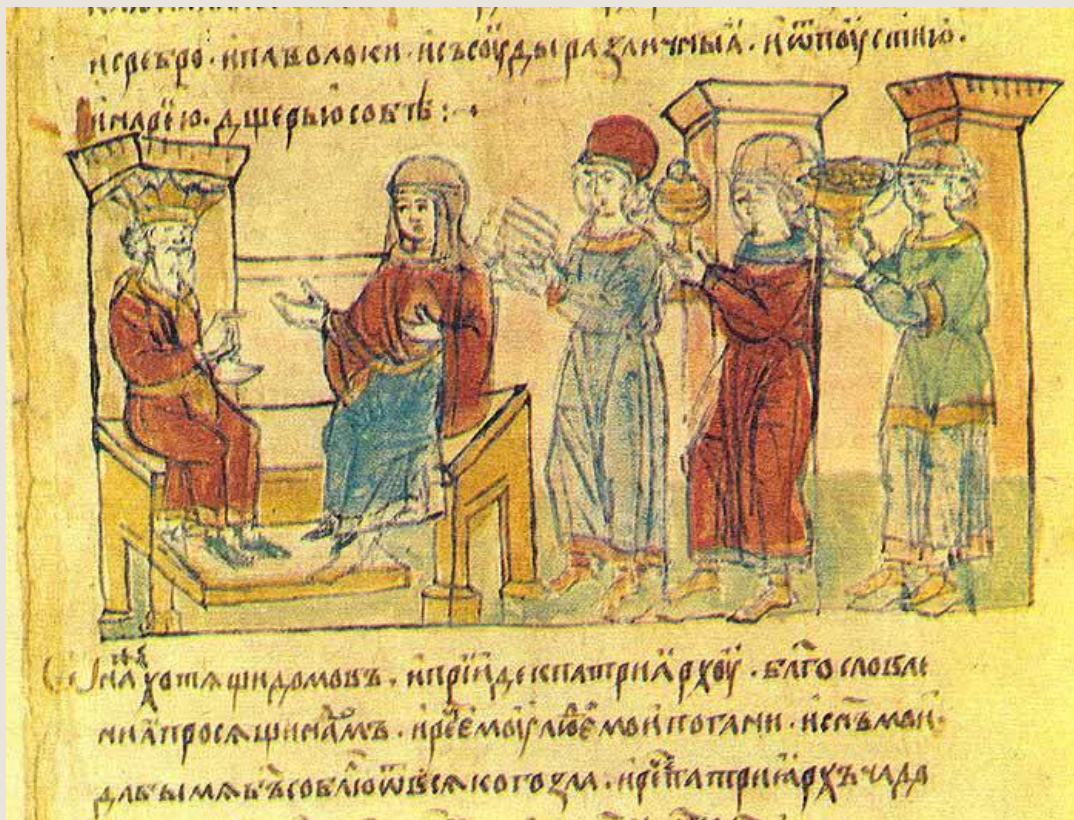 исребро · ипаволоки · исъсоуды различныꙗ · иѿпоусти ю ·
инарⷱ҇е ю · дщерью собѣ : ·
на хотѧщи домовъ · иприиде кпатриꙗрхоу · блг҃ословле
ниꙗ просѧщи надомъ · ирⷱ҇е моу людⷷ҇е мои погани · и сн҃ъ мои ·
дабы мѧ бъ҃ съблюлъ ѿвсѧкого зла · ирⷱ҇е патриꙗрхъ чадо